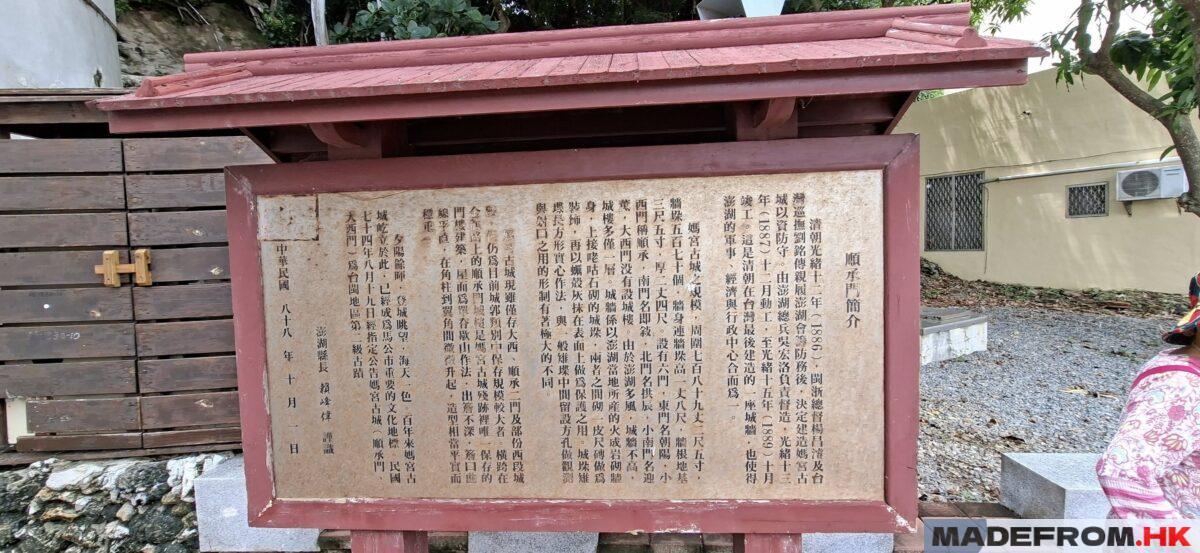 順承門簡介
清朝光緒十二年（1886），閩浙總督楊昌濬及台
灣巡撫劉銘傳親履澎湖會籌防務後，決定建造媽宮古
城以資防守。由澎湖總兵吳宏洛負責督造，光緒十三
年（1887）十二月動工，至光緒十五年（1889）十月
竣工。這是清朝在台灣最後建造的一座城牆，也使得
澎湖的軍事、經濟與行政中心合而為一。
媽宮古城之規模，周圍七百八十九丈二尺五寸，
牆垛五百七十個，牆身連牆垛高一丈八尺，牆根地基
三尺五寸，厚二丈四尺，設有六門，東門名朝陽，小
西門稱順承，南門名即敍，北門名拱辰，小南門名迎
薰，大西門沒有設城樓。由於澎湖多風，城牆不高，
城樓多僅一層。城牆係以澎湖當地所產的火成岩砌牆
身，上接咾咕石砌的城垛，兩者之間砌一皮尺磚做為
裝飾，再以蠣殼灰抹在表面上做為保護之用。城垛雉
堞長方形實心作法，與一般雉堞中間留設方孔做觀測
與射口之用的形制有著極大的不同。
古城現雖僅存大西、順承二門及部份西段城
仍為目前城郭類別中保存規模較大者。橫跨在
的順承門城樓是媽宮古城殘跡裡唯一保存的
門樓建築，屋面為單脊歇山作法，出簷不深，簷口
線平直，在角柱到翼角間微微升起，造型相當平實而
穩重。
夕陽餘暉，登城眺望，海天一色，百年來媽宮古
城屹立於此，已經成為馬公市重要的文化地標。民國
七十四年八月十九日經指定公告媽宮古城（順承門、
大西門）為台閩地區第一級古蹟。
澎湖縣長 賴峰偉 謹識
中華民國 八十八年 十月 一日
MADEFROM.HK